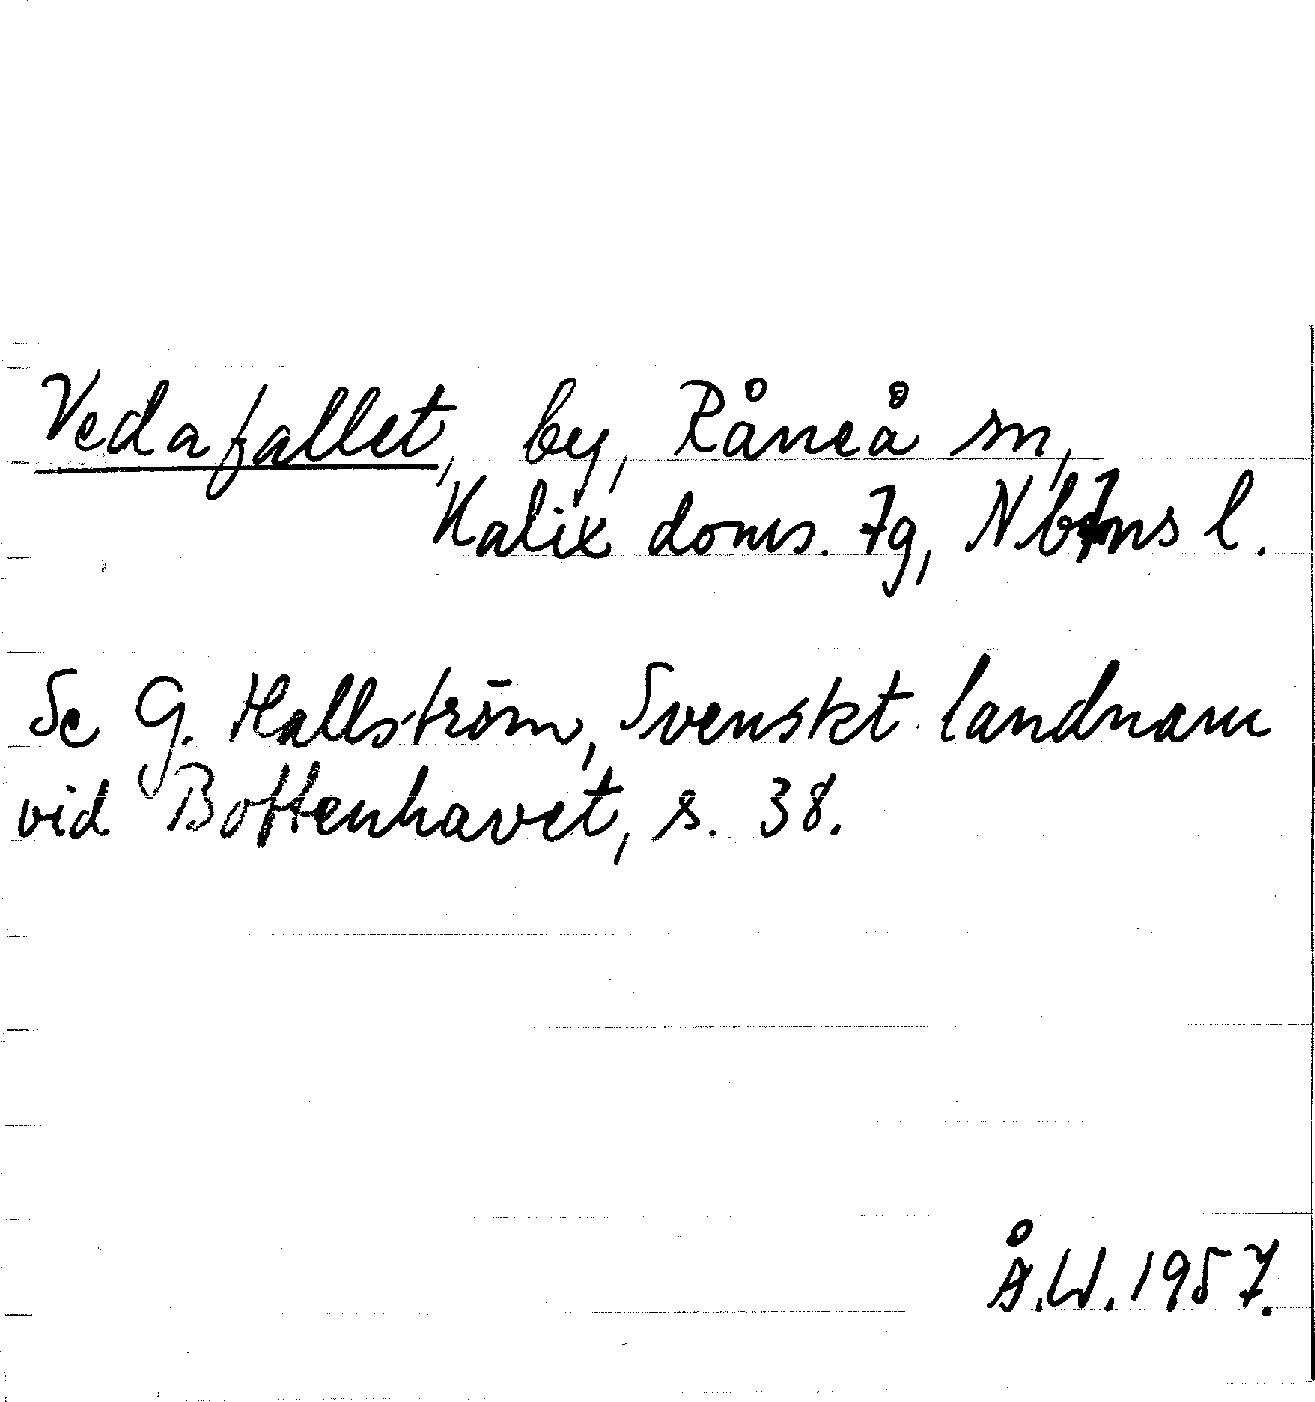 Vedafallet, by, Råneå sn,
Kalix doms. 7g, Nbtns l.
Se G. Hallström, Svenskt landnam
vid Bottenhavet, s. 38.
Å.W. 1957.